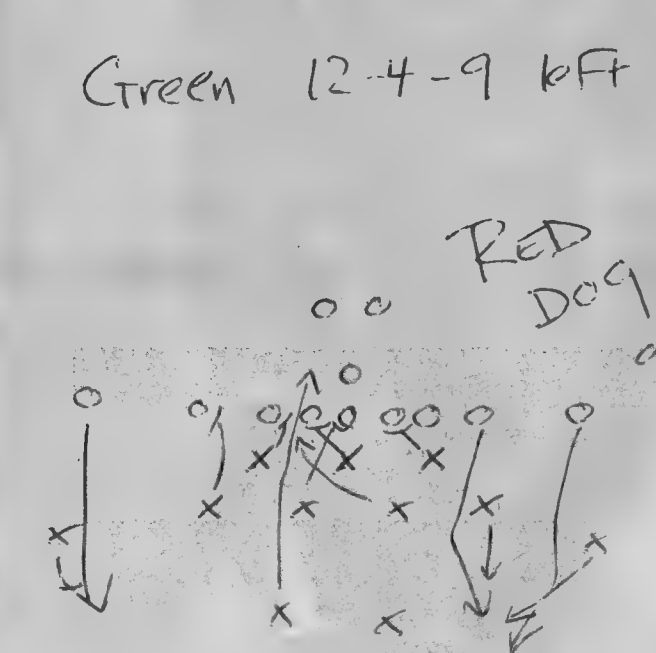 Green 12-4-9 left
RED
DOG